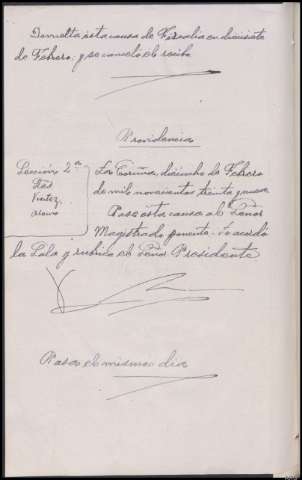 Devuelta esta causa de Fiscalía en diecisiete
de Febrero, y se canceló el recibo
Providencia
Sección 2ª
La Coruña, dieciocho de Febrero
de mil novecientos treinta y
Pase esta causa al Señor
Magistrado ponente. Lo acordó
la Sala y rubrica el Señor Presidente
Pasa el mismo día